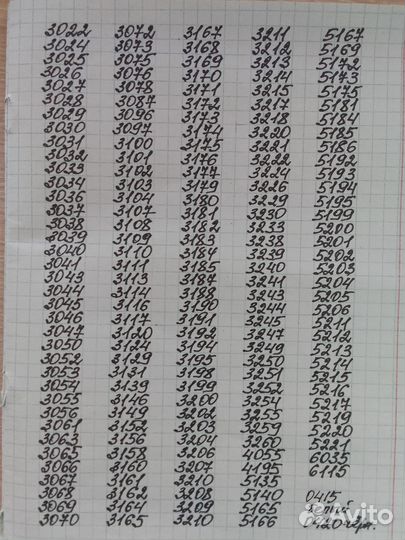 3022
3024
3025
3026
3027
3028
3029
3030
3031
3032
3033
3034
3036
3037
3038
3039
3040
3041
3043
3044
3045
3046
3047
3050
3052
3053
3054
3055
3056
3061
3063
3065
3066
3067
3068
3069
3070
3072
3073
3075
3076
3078
3087
3096
3097
3100
3101
3102
3103
3104
3107
3108
3109
3110
3111
3113
3114
3116
3117
3120
3124
3129
3131
3139
3146
3149
3152
3156
3158
3160
3161
3162
3164
3165
3167
3168
3169
3170
3171
3172
3173
3174
3175
3176
3177
3179
3180
3181
3182
3183
3184
3185
3187
3188
3190
3191
3192
3194
3195
3198
3199
3200
3202
3203
3204
3206
3207
3210
3208
3209
3210
3211
3212
3213
3214
3215
3217
3218
3220
3221
3222
3224
3226
3229
3230
3233
3238
3239
3240
3241
3243
3244
3245
3247
3249
3250
3251
3252
3254
3255
3259
3260
4055
4195
5135
5140
5165
5166
5167
5169
5172
5173
5175
5181
5184
5185
5186
5192
5193
5194
5195
5199
5200
5201
5202
5203
5204
5205
5206
5211
5212
5213
5214
5215
5216
5217
5219
5220
5221
6035
6115
0415
0420
Avito